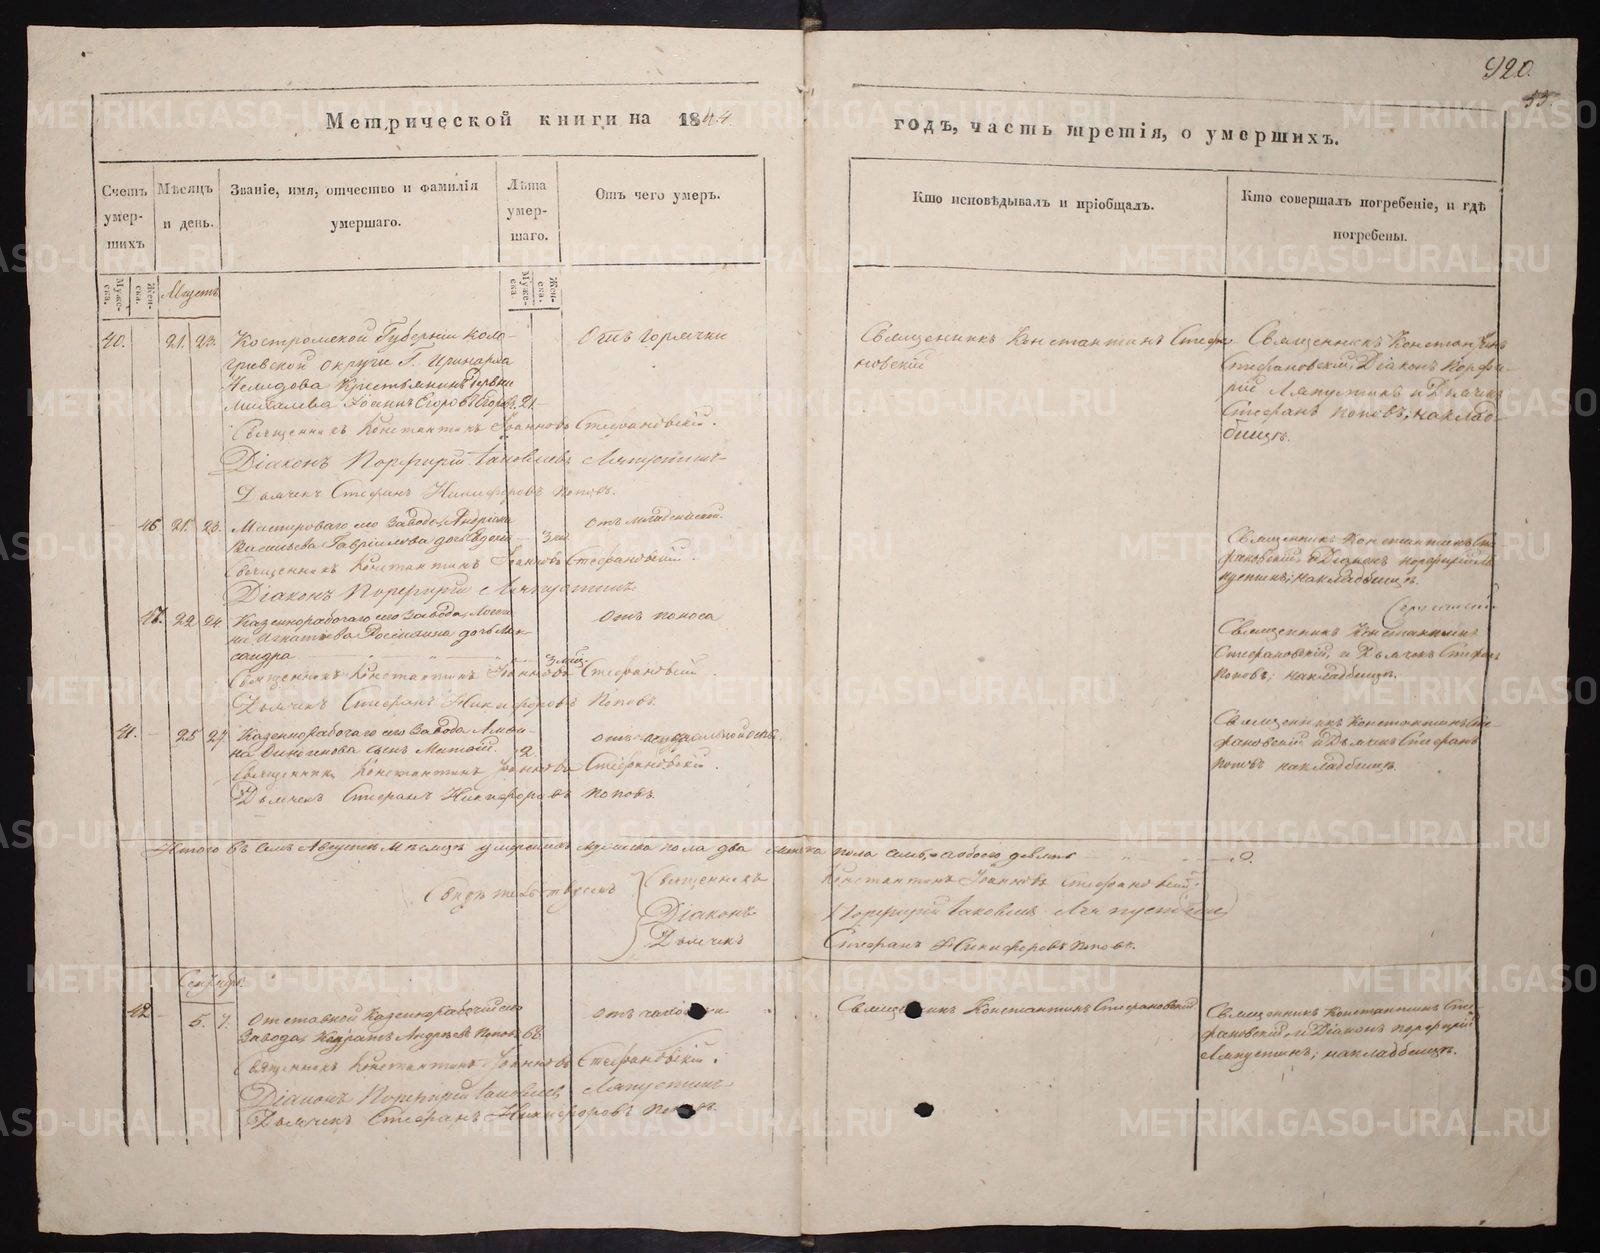 920.
53.
Метрической книги на 1844
годъ, часть третія, о умершихъ.
Счетъ умер-шихъ
Мѣсяцъ и день.
Званіе, имя, отчество и фамилія умершаго.
Лѣта умер-шаго.
Отъ чего умеръ.
Кто исповѣдывалъ и пріобщалъ.
Кто совершалъ погребеніе, и гдѣ погребены.
Муже-ска.
Жен-ска.
Августъ
Муже-ска
Жен-ска.
40. 21. 23. Костромской Губерніи Коло-
гривской округи Г.
Крестьянинъ
Іоаннъ Егоровъ 21
Отъ горячки
Священникъ Константинъ Стефа-
новскій
Священникъ Константинъ
Стефановскій, Діаконъ Порфи-
рій Ляпустинъ и Дьячекъ
Стефанъ Поповъ; на клад-
бищѣ.
Священникъ Константинъ Іоанновъ Стефановскій.
Діаконъ Порфирій Іаковлевъ Ляпустинъ
Дьячекъ Стефанъ Никифоровъ Поповъ.
46 21. 23. Мастероваго сего Завода Андріана
Васильева Гаврилова дочь
Отъ младенческой.
Священникъ Константинъ Сте-
фановскій и Діаконъ Порфирій Ля-
пустинъ; на кладбищѣ.
Священникъ Константинъ Іоанновъ Стефановскій.
Діаконъ Порфирій Ляпустинъ
47. 22 24 Казеннорабочаго сего Завода
Игнатьева дочь Алек-
сандра 3 мѣс.
Отъ поноса
Священникъ Константинъ
Стефановскій, и Дьячекъ Стефанъ
Поповъ; на кладбищѣ.
Священникъ Константинъ Іоанновъ Стефановскій.
Дьячекъ Стефанъ Никифоровъ Поповъ.
41. 25 27 Казеннорабочаго сего Завода
сынъ 2
отъ
Священникъ Константинъ Сте-
фановскій и Дьячекъ Стефанъ
Поповъ на кладбищѣ.
Священникъ Константинъ Іоанновъ Стефановскій.
Дьячекъ Стефанъ Никифоровъ Поповъ.
Итого въ семъ Августѣ Мѣсяцѣ умершихъ мужеска пола два женска пола семь, а обоего девять
Свидѣтельствуемъ
Священникъ Константинъ Іоанновъ Стефановскій
Діаконъ Порфирій Іаковлевъ Ляпустинъ
Дьячекъ Стефанъ Никифоровъ Поповъ.
Сентябрь
42 5. 7. Отставной Казеннорабочій сего
Завода Андреевъ Поповъ 68
отъ
Священникъ Константинъ Стефановскій
Священникъ Константинъ Сте-
фановскій и Діаконъ Порфирій
Ляпустинъ; на кладбищѣ.
Священникъ Константинъ Іоанновъ Стефановскій.
Діаконъ Порфирій Іаковлевъ Ляпустинъ
Дьячекъ Стефанъ Никифоровъ Поповъ.
METRIKI.GASO-URAL.RU